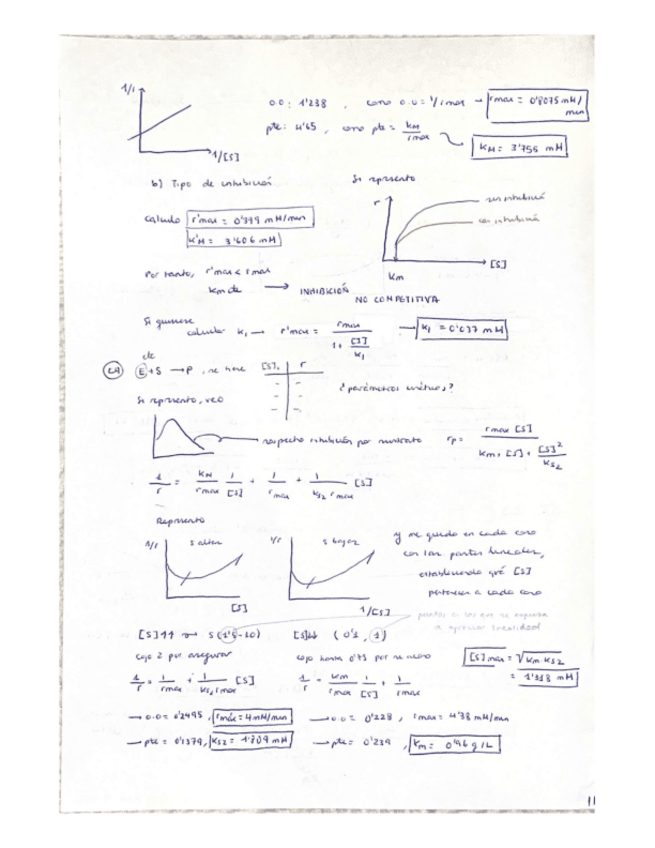 1/r
1/[S]
o.o: 1'238 , como o.o = 1/rmax → rmax = 0'8075 mM/min
pte: 4'65 , como pte = KM/rmax
KM = 3'755 mM
b) Tipo de inhibición
Si represento
r
sin inhibición
con inhibición
Km
[S]
Calculo r'max = 0'399 mM/min
K'M = 3'606 mM
Por tanto, r'max < rmax
Km cte → INHIBICIÓN
NO COMPETITIVA
Si quisiese
calcular KI → r'max = rmax / (1 + [I]/KI) → KI = 0'037 mM
E+S → P , se hace [S]. r
¿parámetros cinéticos?
Si represento, veo
sospecho inhibición por sustrato rp = rmax [S] / (Km + [S] + [S]²/KS2)
1/r = KM/rmax 1/[S] + 1/rmax + 1/(KS2 rmax) [S]
Represento
1/r S altas
[S]
1/r S bajas
1/[S]
y me quedo en cada caso
con las partes lineales,
estableciendo qué [S]
pertenece a cada caso
puntos a los que se empieza
a apreciar linealidad
[S]↑↑ → S (1'5-10)
[S]↓↓ (0'1, 1)
cojo 2 por asegurar
cojo hasta 0'75 por
[S]max = √(Km·KS2)
= 1'318 mM
1/r = 1/rmax + 1/(KS2 rmax) [S]
1/r = Km/rmax 1/[S] + 1/rmax
→ o.o = 0'2495 , rmáx = 4 mM/min
→ o.o = 0'228 , rmax = 4'38 mM/min
→ pte = 0'1379, KS2 = 1'809 mM
→ pte = 0'219 , Km = 0'96 g/L
11